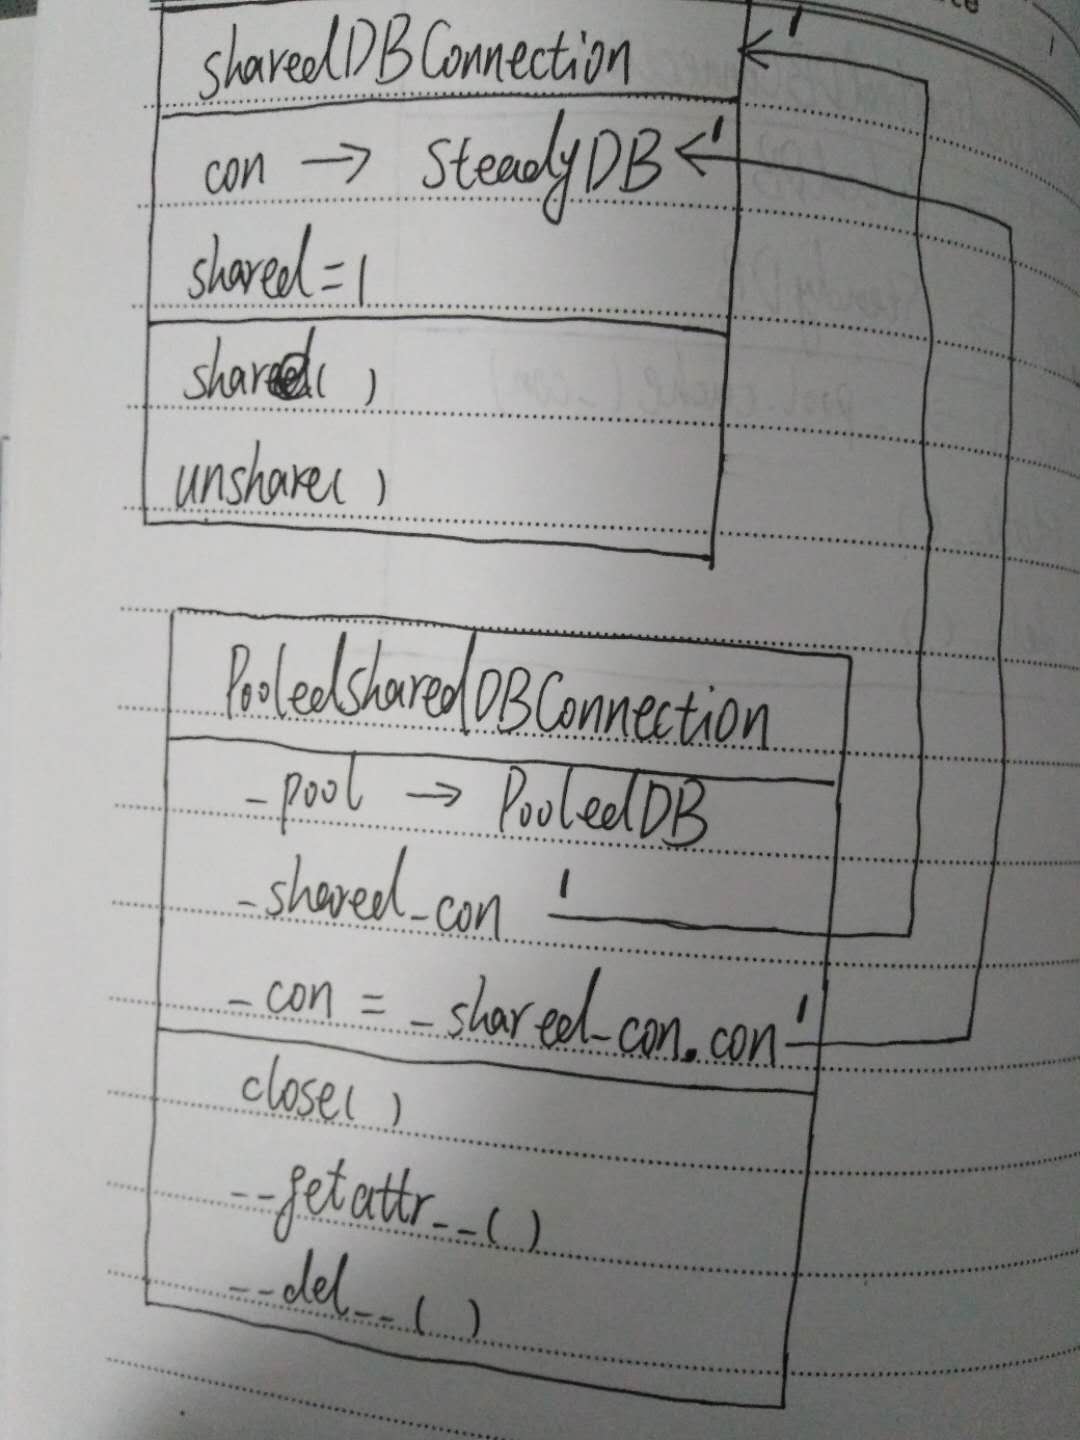 sharedDBConnection
1
con → SteadyDB
1
shared=1
share()
unshare()
PooledSharedDBConnection
_pool → PooledDB
_shared_con 1
_con = _shared_con.con 1
close()
__getattr__()
__del__()